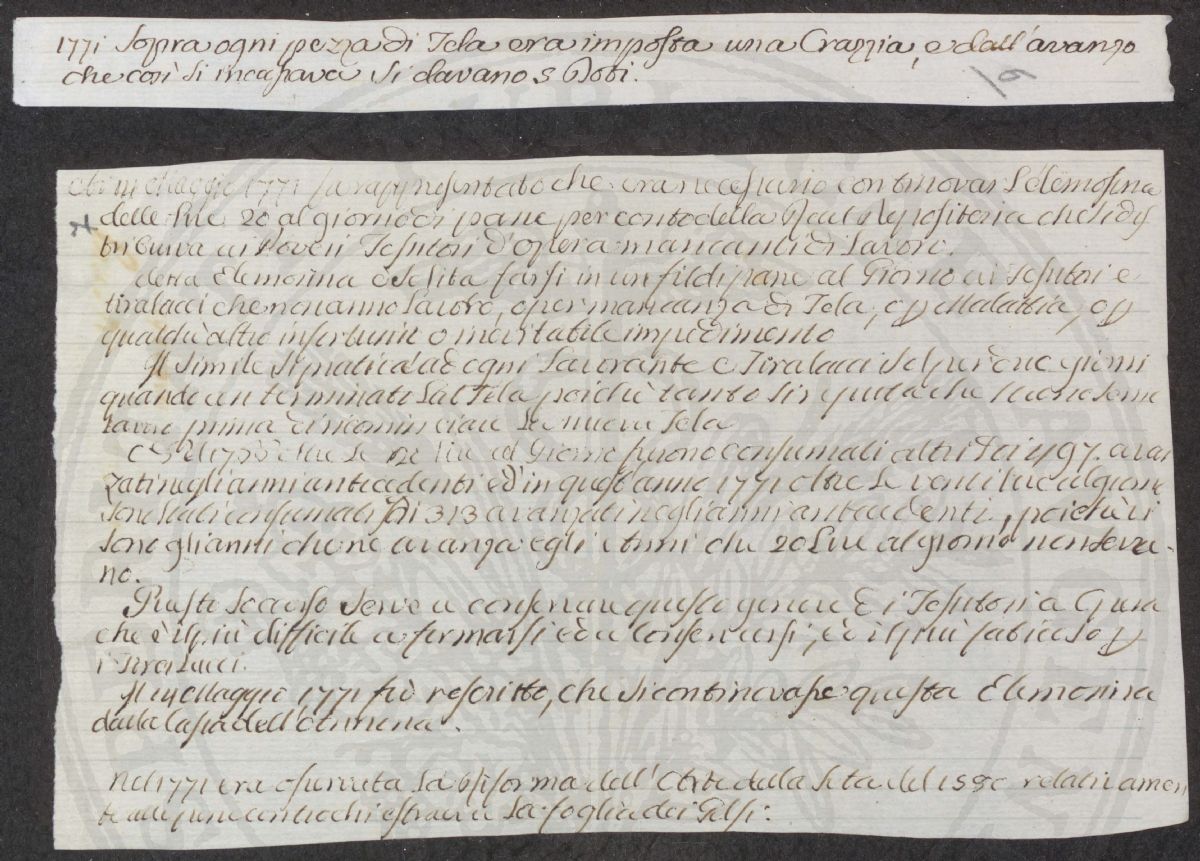 1771 Sopra ogni pezza di Tela era imposta una Crazzia, e dall'avanzo
che così si incassava si davano 5 Doti.
16
Maggio 1771 fu rappresentato che era necessario continovar L'elemosina
delle Lire 20 al giorno di pane per conto della che si dis
tribuiva ai Poveri Tessitori d'opera mancanti di Lavoro
detta Elemosina è solita farsi in un fil di pane al Giorno ai Tessitori e
tiralacci che non anno Lavoro, o per mancanza di Tela, o p Malattia, o p
qualche altro infortunio o inevitabile impedimento
Il Simile si pratica ad ogni Lavorante e Tiralacci per due giorni
quando an terminata La Tela poichè tanto si reputa che siano senza
Lavoro prima di ricominciare La nuova Tela
Lire al Giorno furono consumati altri 497. avan
zati negli anni antecedenti ed in quest'anno 1771 oltre Le venti Lire al giorno
sono stati consumati 313 avanzati negli anni antecedenti, poichè vi
sono gli anni che ne avanza e gli Anni che 20 Lire al giorno non serva-
no.
Questo Soccorso Serve a conservare questo genere di Tessitori
che è il più difficile a formarsi ed a conservarsi, ed il più p
i Tiralacci.
Il Maggio 1771 fù rescritto, che si continovasse questa Elemosina
dalla Cassa dell'
Nel 1771 era osservata La Riforma dell'Arte della Seta del 1580 relativamen
te alle pene contro chi estraeva La foglia dei Gelsi: